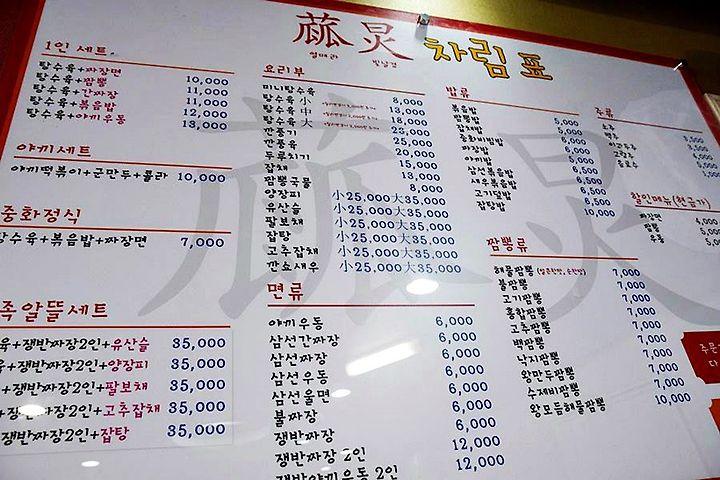 차림표
1인 세트
탕수육+짜장면 10,000
탕수육+짬뽕 11,000
탕수육+간짜장 11,000
탕수육+볶음밥 12,000
탕수육+야끼우동 13,000
야끼세트
야끼떡볶이+군만두+콜라 10,000
중화정식
탕수육+볶음밥+짜장면 7,000
족알뜰세트
육+쟁반짜장2인+유산슬 35,000
+쟁반짜장2인+양장피 35,000
+쟁반짜장2인+팔보채 35,000
+쟁반짜장2인+고추잡채 35,000
쟁반짜장2인+잡탕 35,000
요리부
미니탕수육 8,000
탕수육 小 13,000
탕수육 中 18,000
탕수육 大 23,000
깐풍기 25,000
깐풍육 20,000
두루치기 15,000
잡채 13,000
짬뽕국물 8,000
양장피 小25,000大35,000
유산슬 小25,000大35,000
팔보채 小25,000大35,000
잡탕 小25,000大35,000
고추잡채 小25,000大35,000
깐쇼새우 小25,000大35,000
면류
야끼우동 6,000
삼선간짜장 6,000
삼선짜장 6,000
삼선우동 6,000
삼선울면 6,000
불짜장 6,000
쟁반짜장 6,000
쟁반짜장 2인 12,000
쟁반야끼우동 2인 12,000
밥류
볶음밥 5,000
짬뽕밥 5,000
잡채밥 6,500
중화비빔밥
짜장밥 5,000
야끼밥
삼선볶음밥
새우볶음밥
고기덮밥 6,500
잡탕밥 10,000
짬뽕류
해물짬뽕 7,000
불짬뽕 7,000
고기짬뽕 7,000
홍합짬뽕 7,000
고추짬뽕 7,000
백짬뽕 7,000
낙지짬뽕 7,000
왕만두짬뽕 7,000
수제비짬뽕 7,000
왕모듬해물짬뽕 10,000
주류
소주
맥주
이과두주
고량주
할인메뉴(현금가)
짜장면 4,000
짬뽕 5,000
우동 5,000
주문